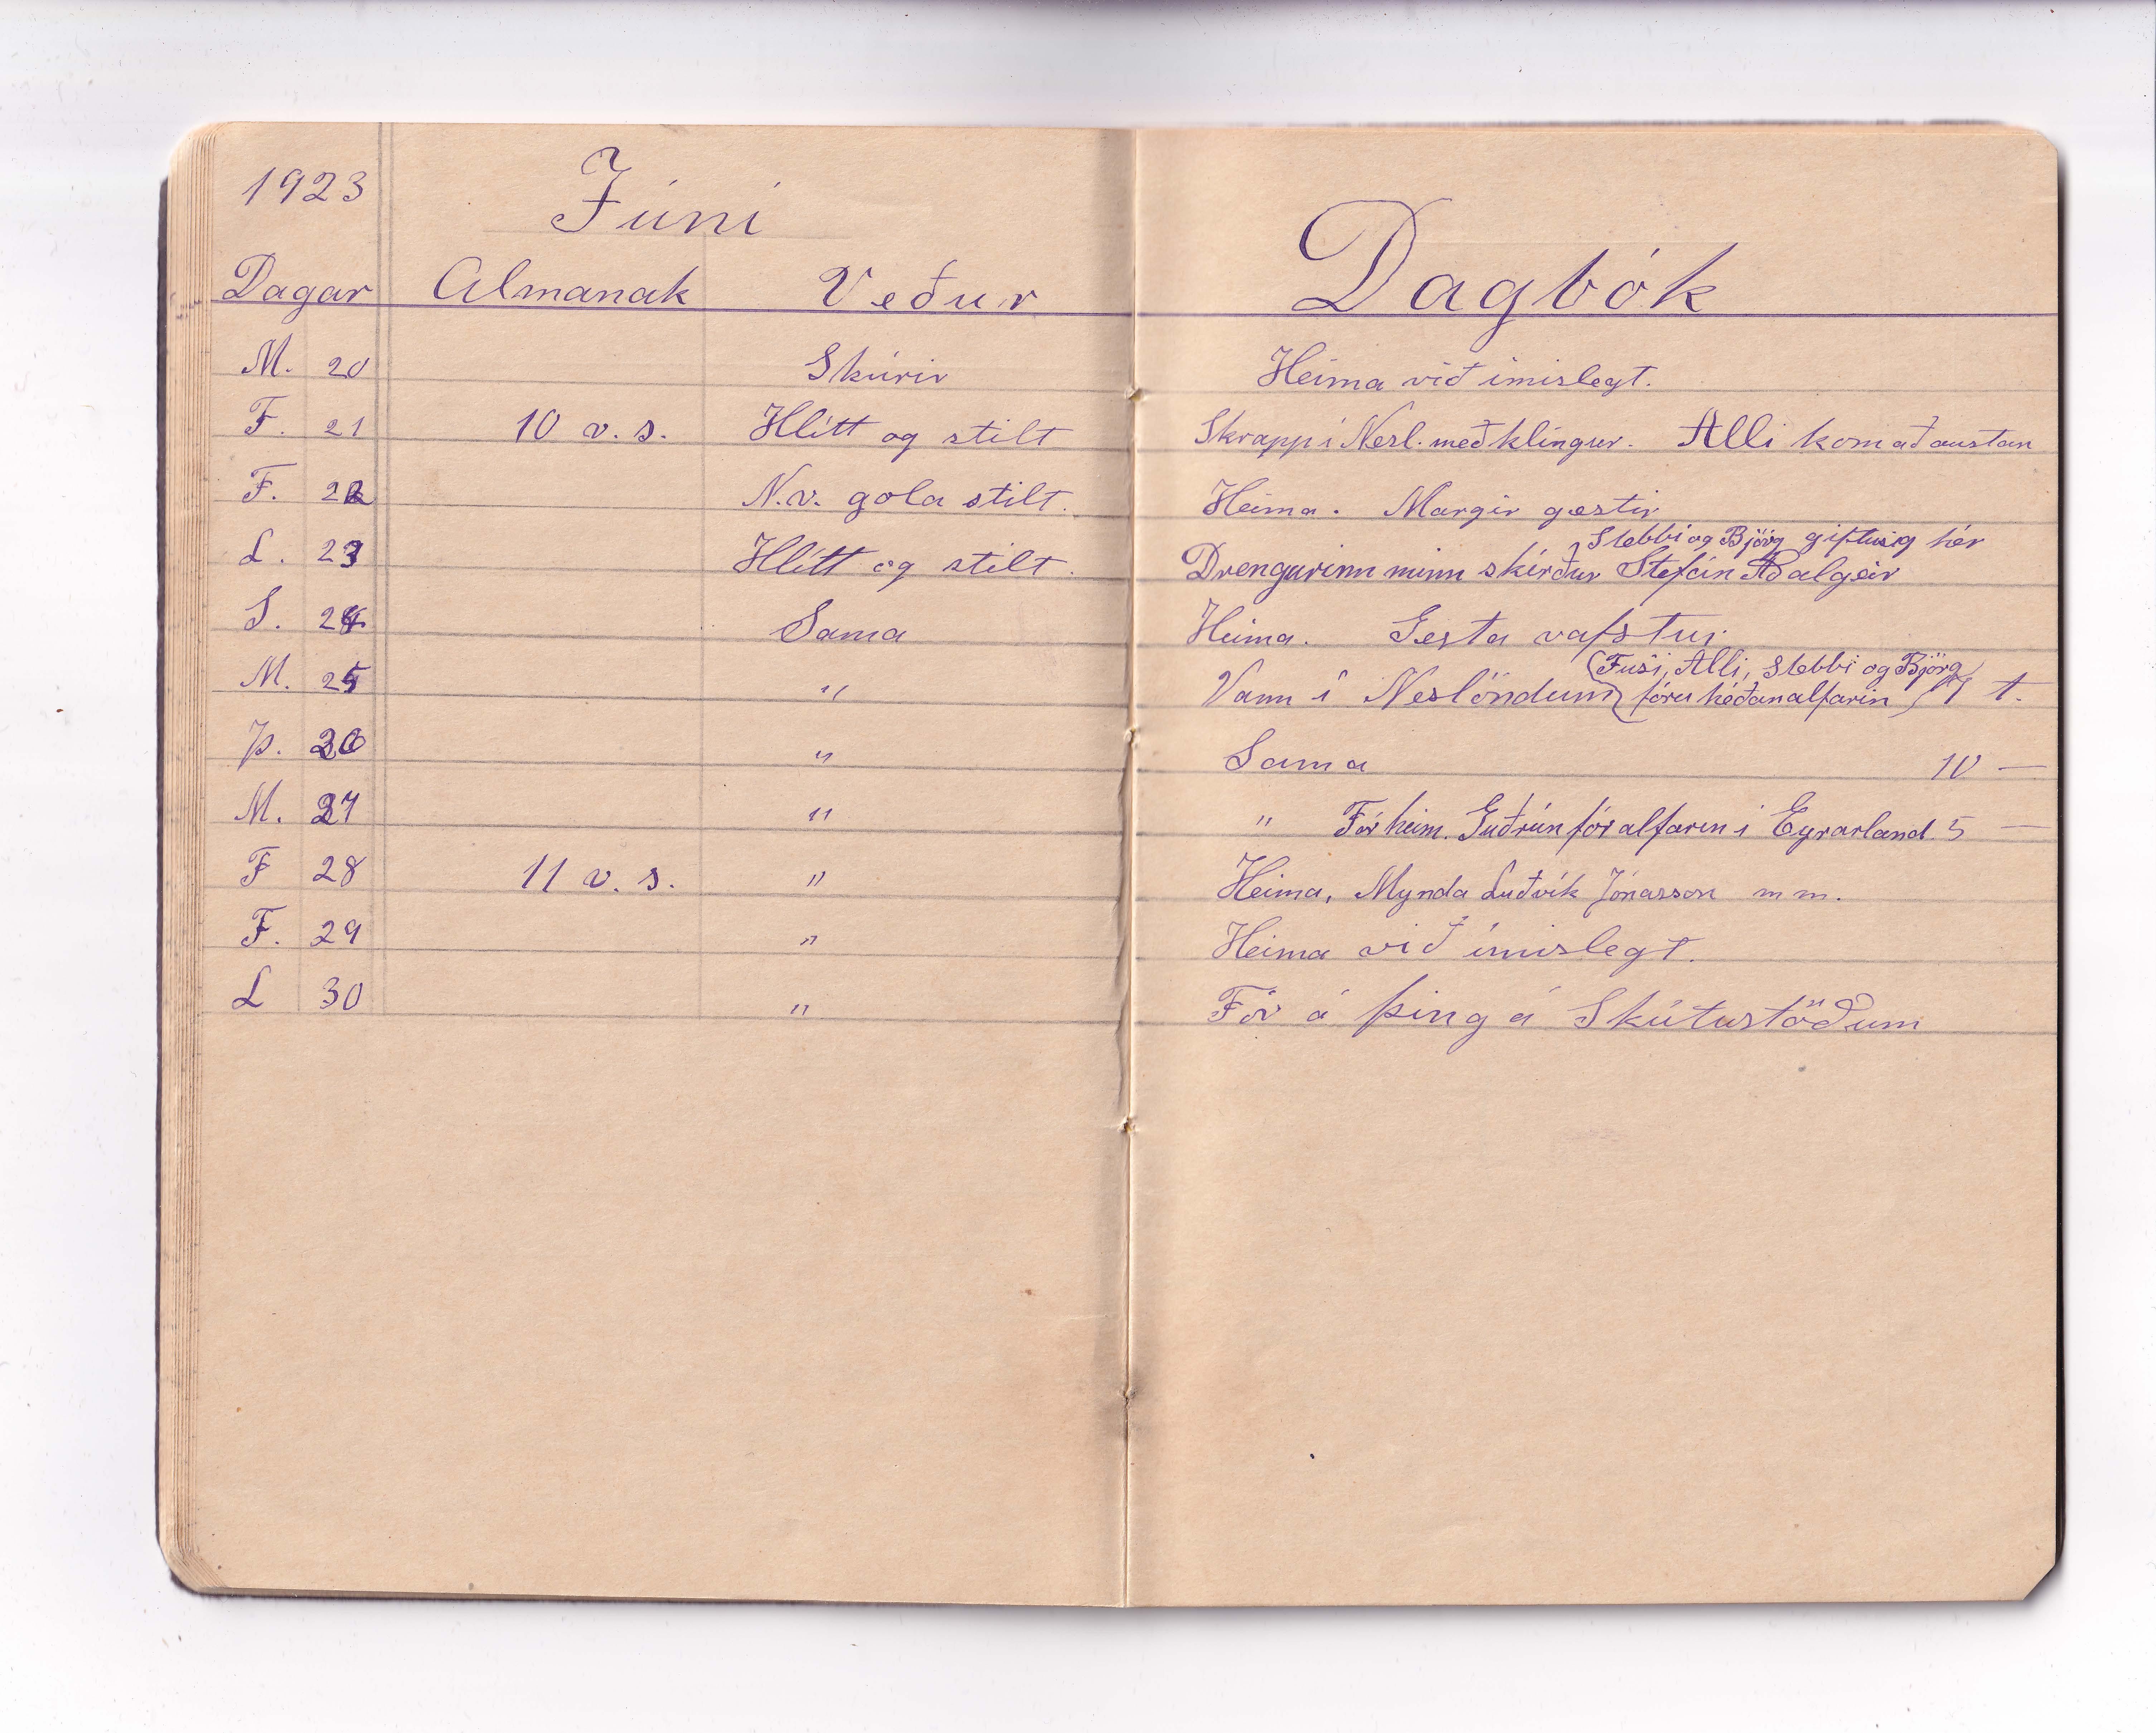 1923 Júní
Dagar Almanak Veður Dagbók
M. 20 Skúrir Heima við ímislegt.
F. 21 10 v. s. Hlítt og stilt Skrapp í Nesl. með klingur. Alli kom að austan
F. 22 N.v. gola stilt. Heima. Margir gæstir
Stebbi og Björg giftu sig hér
L. 23 Hlítt og stilt. Drengurinn minn skírður Stefán Aðalgeir
S. 24 Sama Heima. Gesta vafstur.
(Fúsi, Alli, Stebbi og Björg
M. 25 " Vann í Neslöndum fóru héðan alfarin) 7 t.
Þ. 26 " Sama 10 —
M. 27 " " Fór heim. Guðrún fór alfarin í Eyrarland. 5 —
F 28 11 v. s. " Heima, Mynda Luðvík Jónasson m m.
F. 29 " Heima við ímislegt.
L 30 " Fór á þing á Skútustöðum